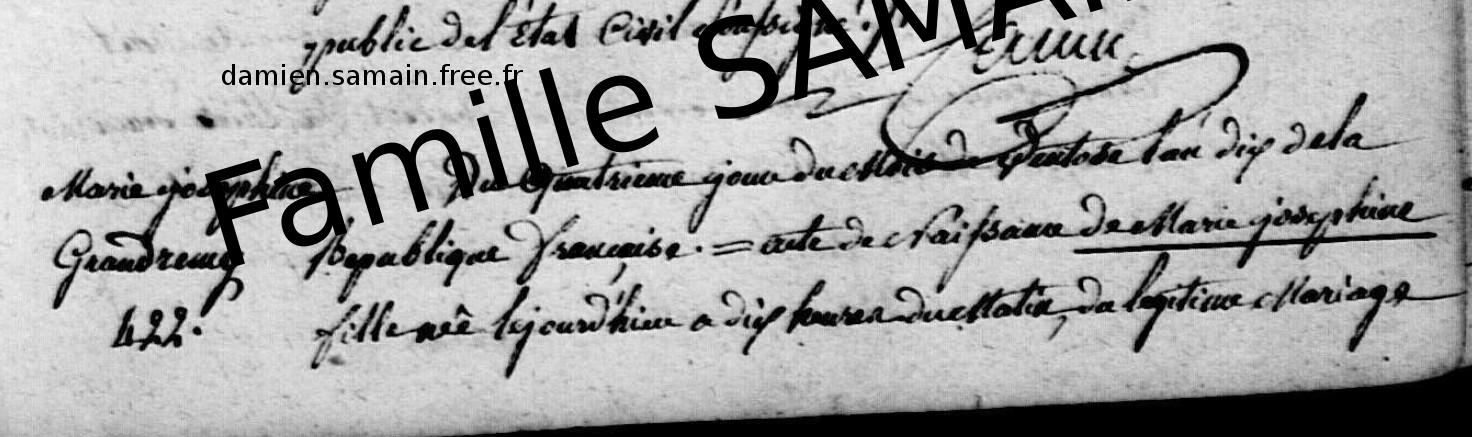 public de l'Etat Civil soussigné.
damien.samain.free.fr
Famille SAMAI
Marie josephine
Grandremy
422.
Du quatrieme jour du Mois de Ventose l'an dix de la
Republique française. = acte de Naissance de Marie josephine
fille née le jourd'hieu a dix heures du Matin, du legitime Mariage